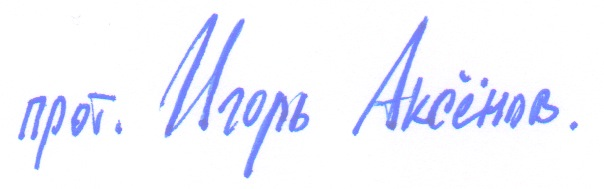 прот. Игорь Аксёнов.